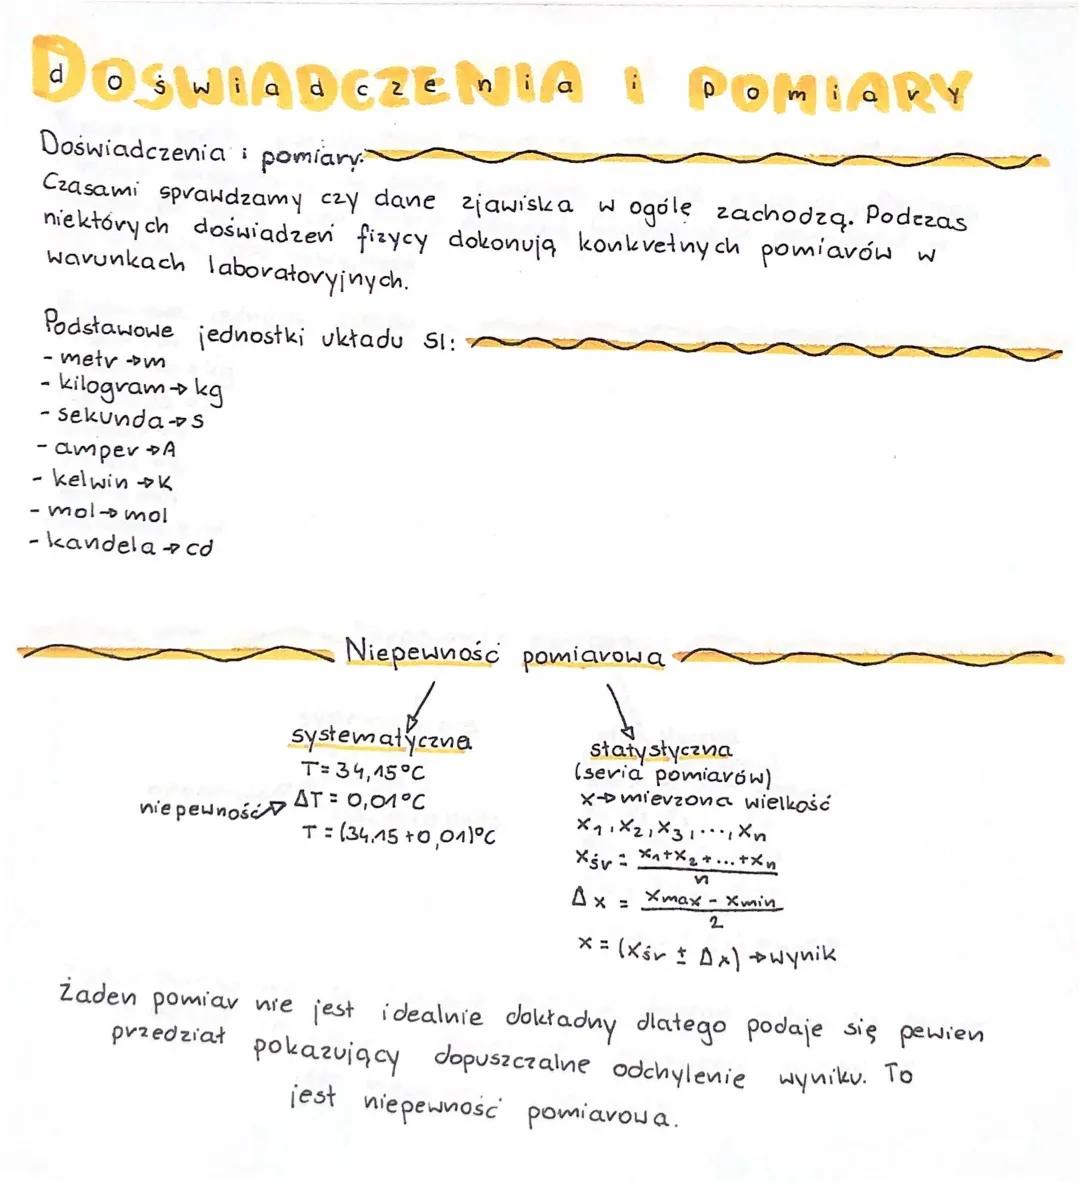 DOŚWIADCZENIA i POMIARY
doświadczenia i pomiary
Doświadczenia i pomiary:
Czasami sprawdzamy czy dane zjawiska w ogólę zachodzą. Podczas
niektórych doświadzeń fizycy dokonują konkretnych pomiarów w
warunkach laboratoryjnych.
Podstawowe jednostki układu SI:
- metr → m
- kilogram → kg
- sekunda → s
- amper → A
- kelwin → K
- mol → mol
- kandela → cd
Niepewność pomiarowa
systematyczna
T = 34,15°C
niepewność → ΔT = 0,01°C
T = (34,15 + 0,01)°C
statystyczna
(seria pomiarów)
x → mierzona wielkość
x₁, x₂, x₃, ..., xn
xśr = x₁+x₂+...+xn / n
Δx = xmax - xmin / 2
x = (xśr ± Δx) → wynik
Żaden pomiar nie jest idealnie dokładny dlatego podaje się pewien
przedział pokazujący dopuszczalne odchylenie wyniku. To
jest niepewność pomiarowa.